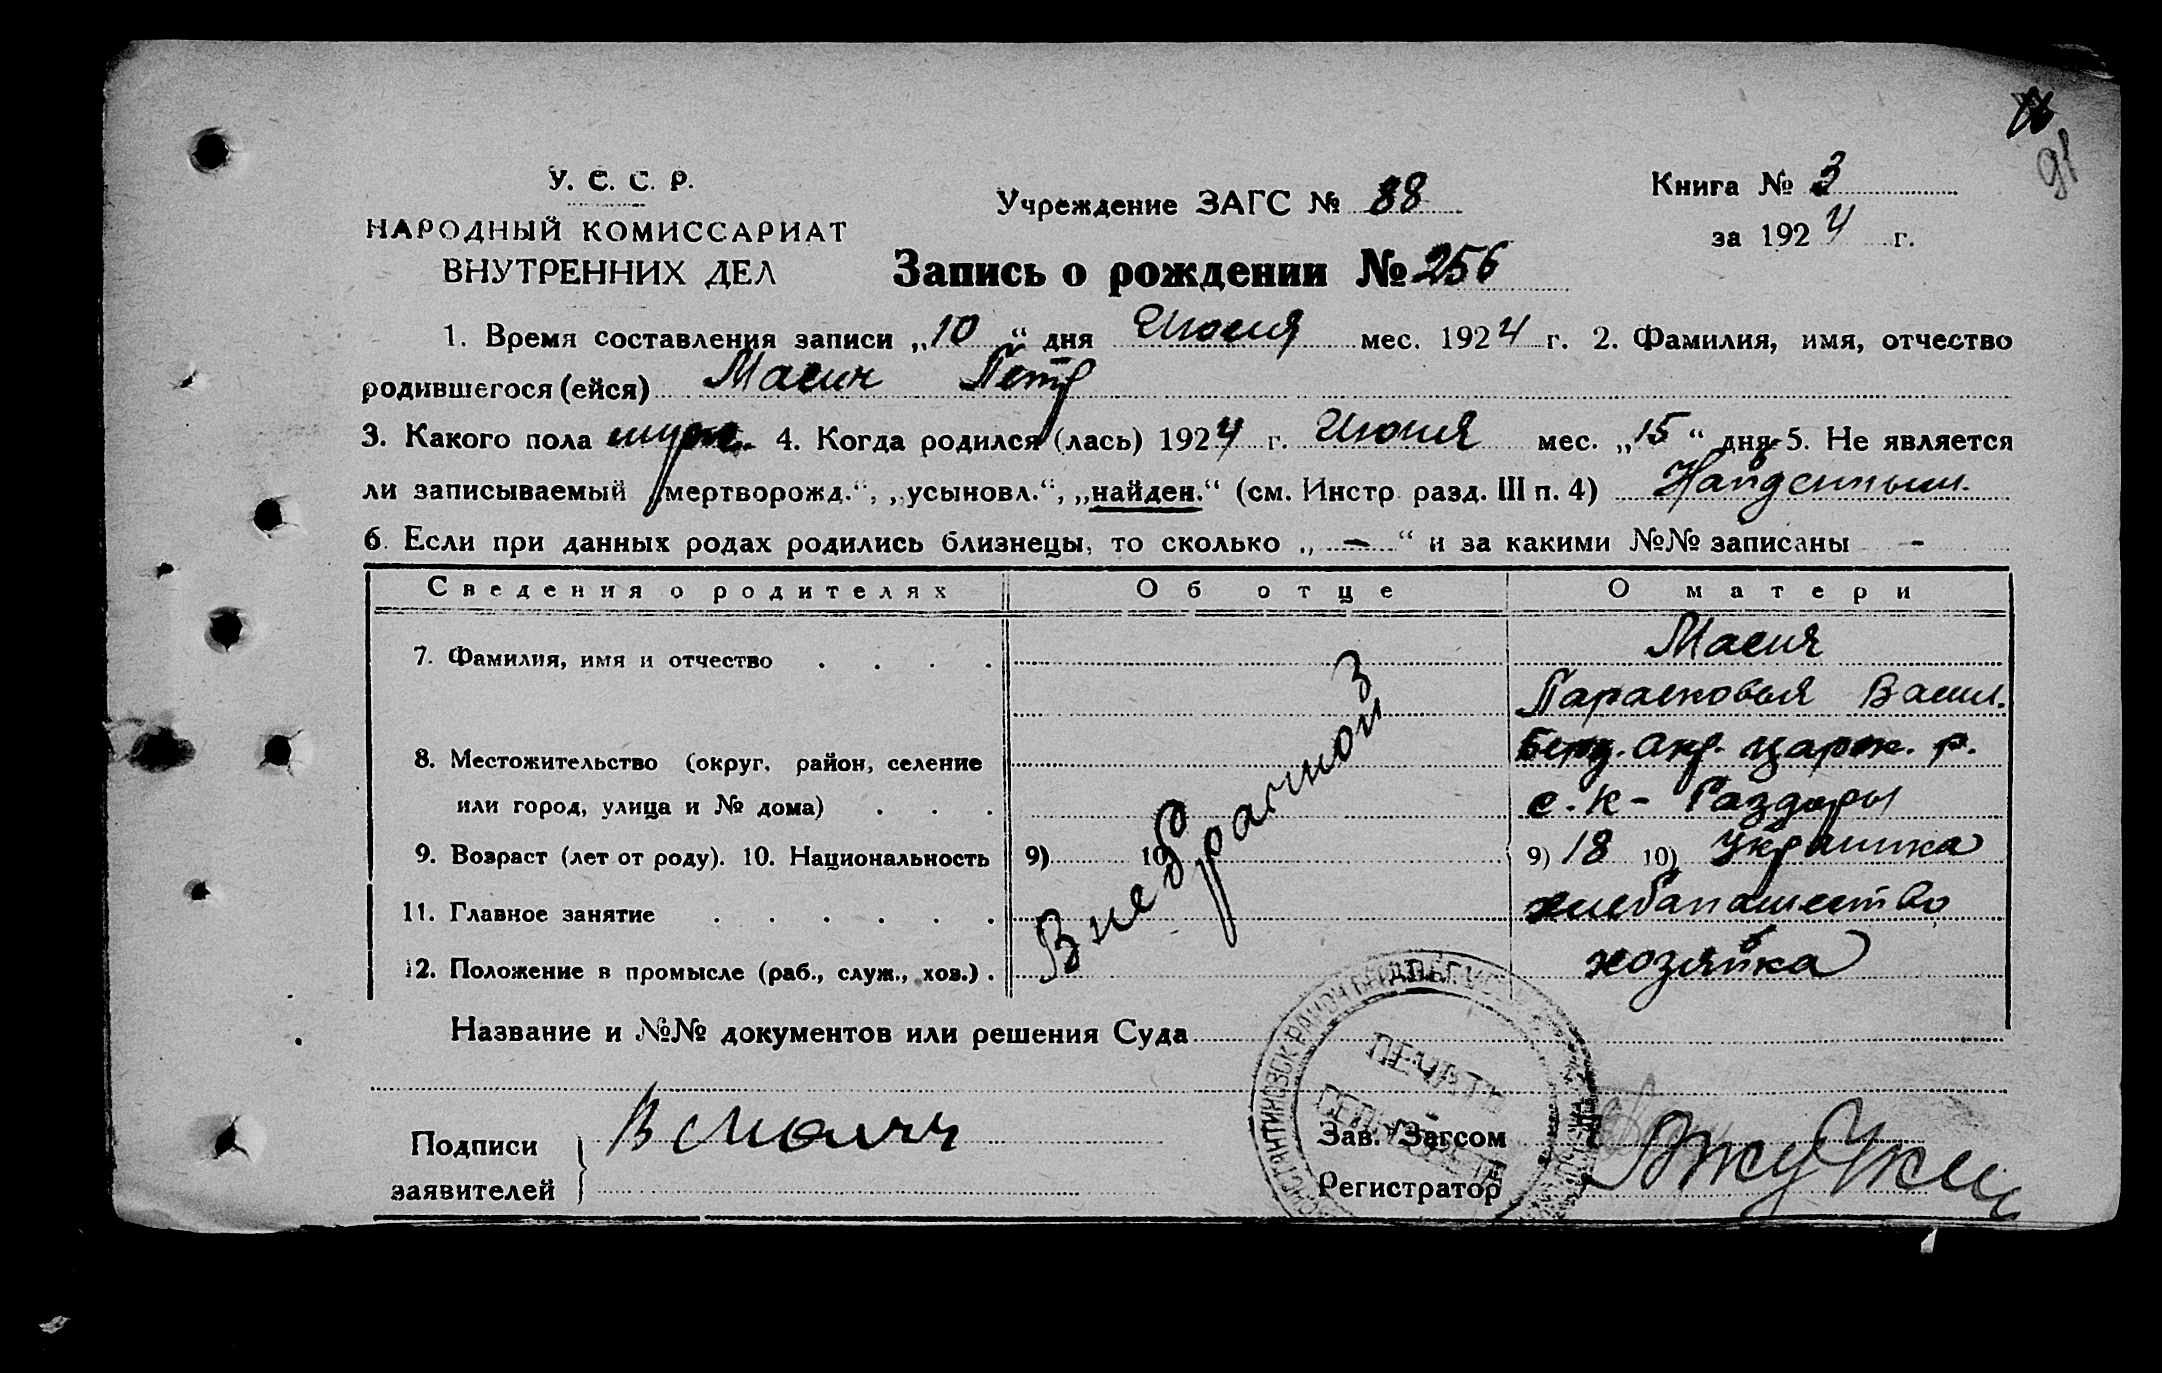 91
У. С. С. Р.
НАРОДНЫЙ КОМИССАРИАТ
ВНУТРЕННИХ ДЕЛ
Учреждение ЗАГС № 88
Книга № 3
за 1924 г.
Запись о рождении № 256
1. Время составления записи „10“ дня мес. 1924 г. 2. Фамилия, имя, отчество
родившегося (ейся) Масич Петр
3. Какого пола муж. 4. Когда родился (лась) 1924 г. Июня мес. „15“ дня 5. Не является
ли записываемый „мертворожд.“, „усыновл.“, „найден.“ (см. Инстр. разд. III п. 4) Найденным.
6. Если при данных родах родились близнецы, то сколько „ — “ и за какими №№ записаны -
Сведения о родителях Об отце О матери
7. Фамилия, имя и отчество . . . . Масич
Парасковья Васил.
8. Местожительство (округ, район, селение царек. р.
или город, улица и № дома) . . . с. К - Раздоры
9. Возраст (лет от роду). 10. Национальность 9) 10) 9) 18 10) Украинка
Внебрачной
11. Главное занятие . . . . . . хлебапашество
12. Положение в промысле (раб., служ., хоз.) . хозяйка
Название и №№ документов или решения Суда
ПЕЧАТЬ
Подписи
заявителей
Зав. Загсом
Регистратор